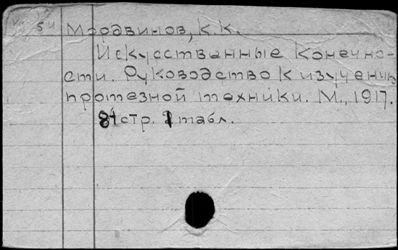 54 Мордвинов, К.К.
Искусственные конечно-
сти. Руководство к изучению
протезной техники. М., 1917.
84 стр. 1 табл.